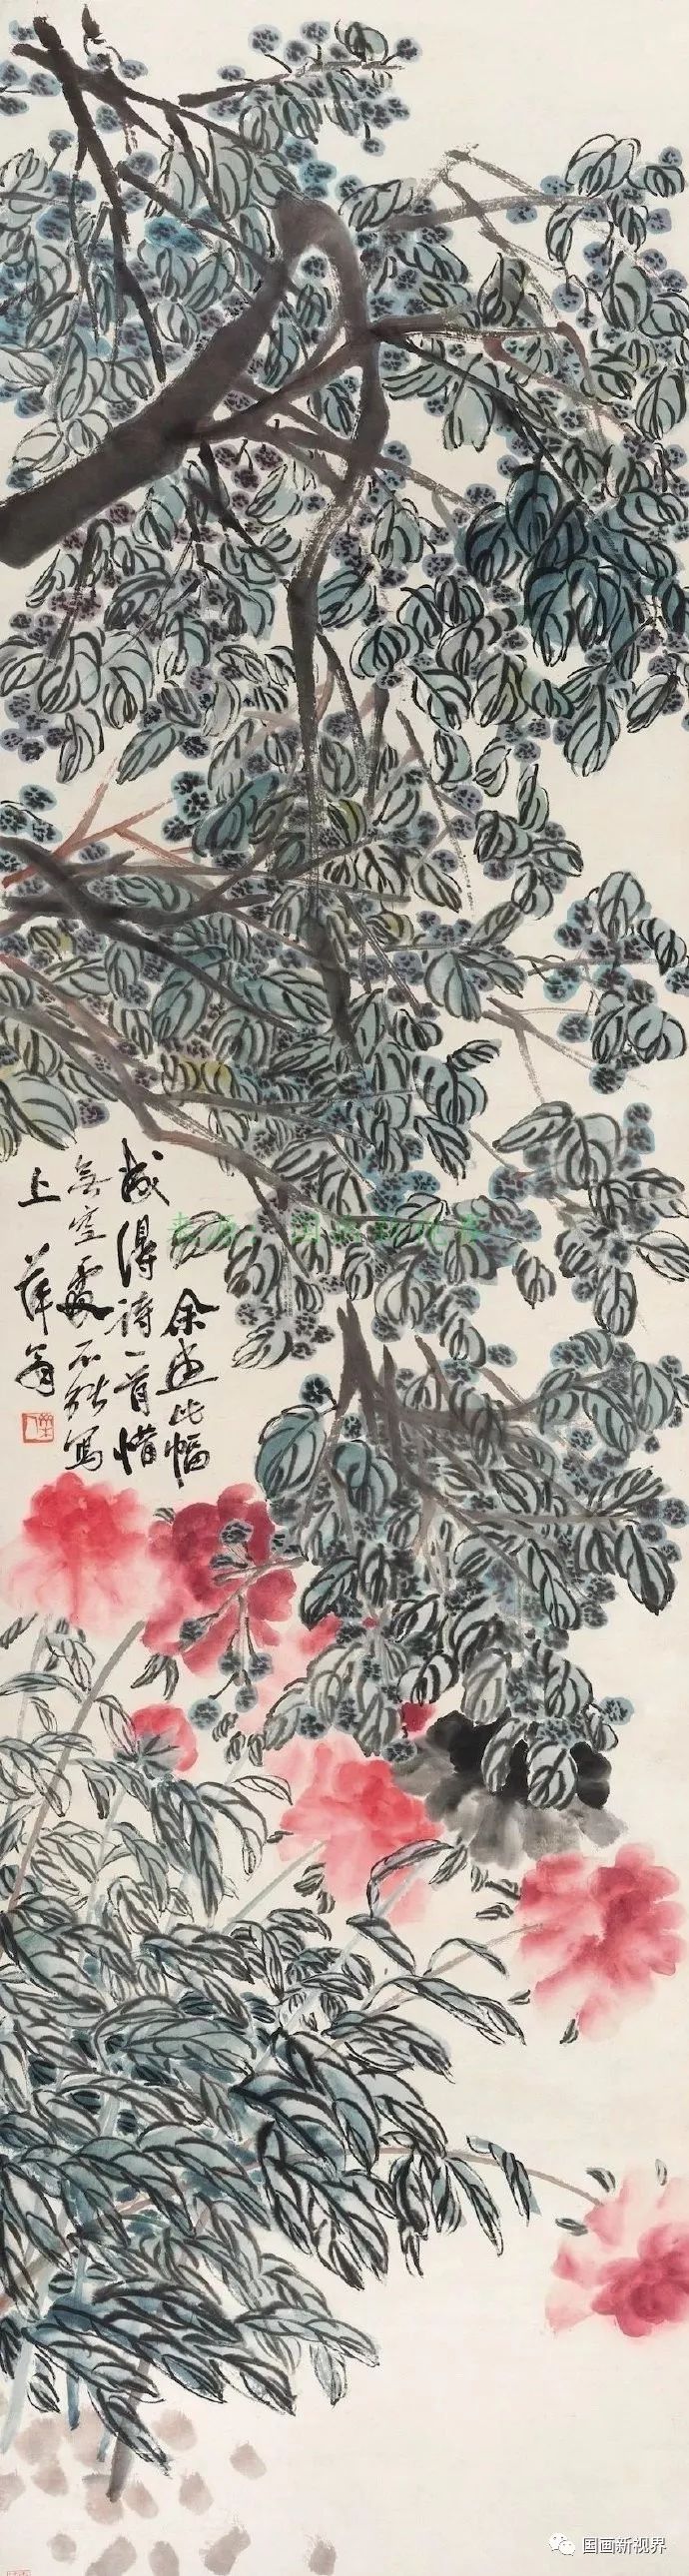 余画此幅
成得诗一首惜
無空處不能寫
上萍翁
国画新视界